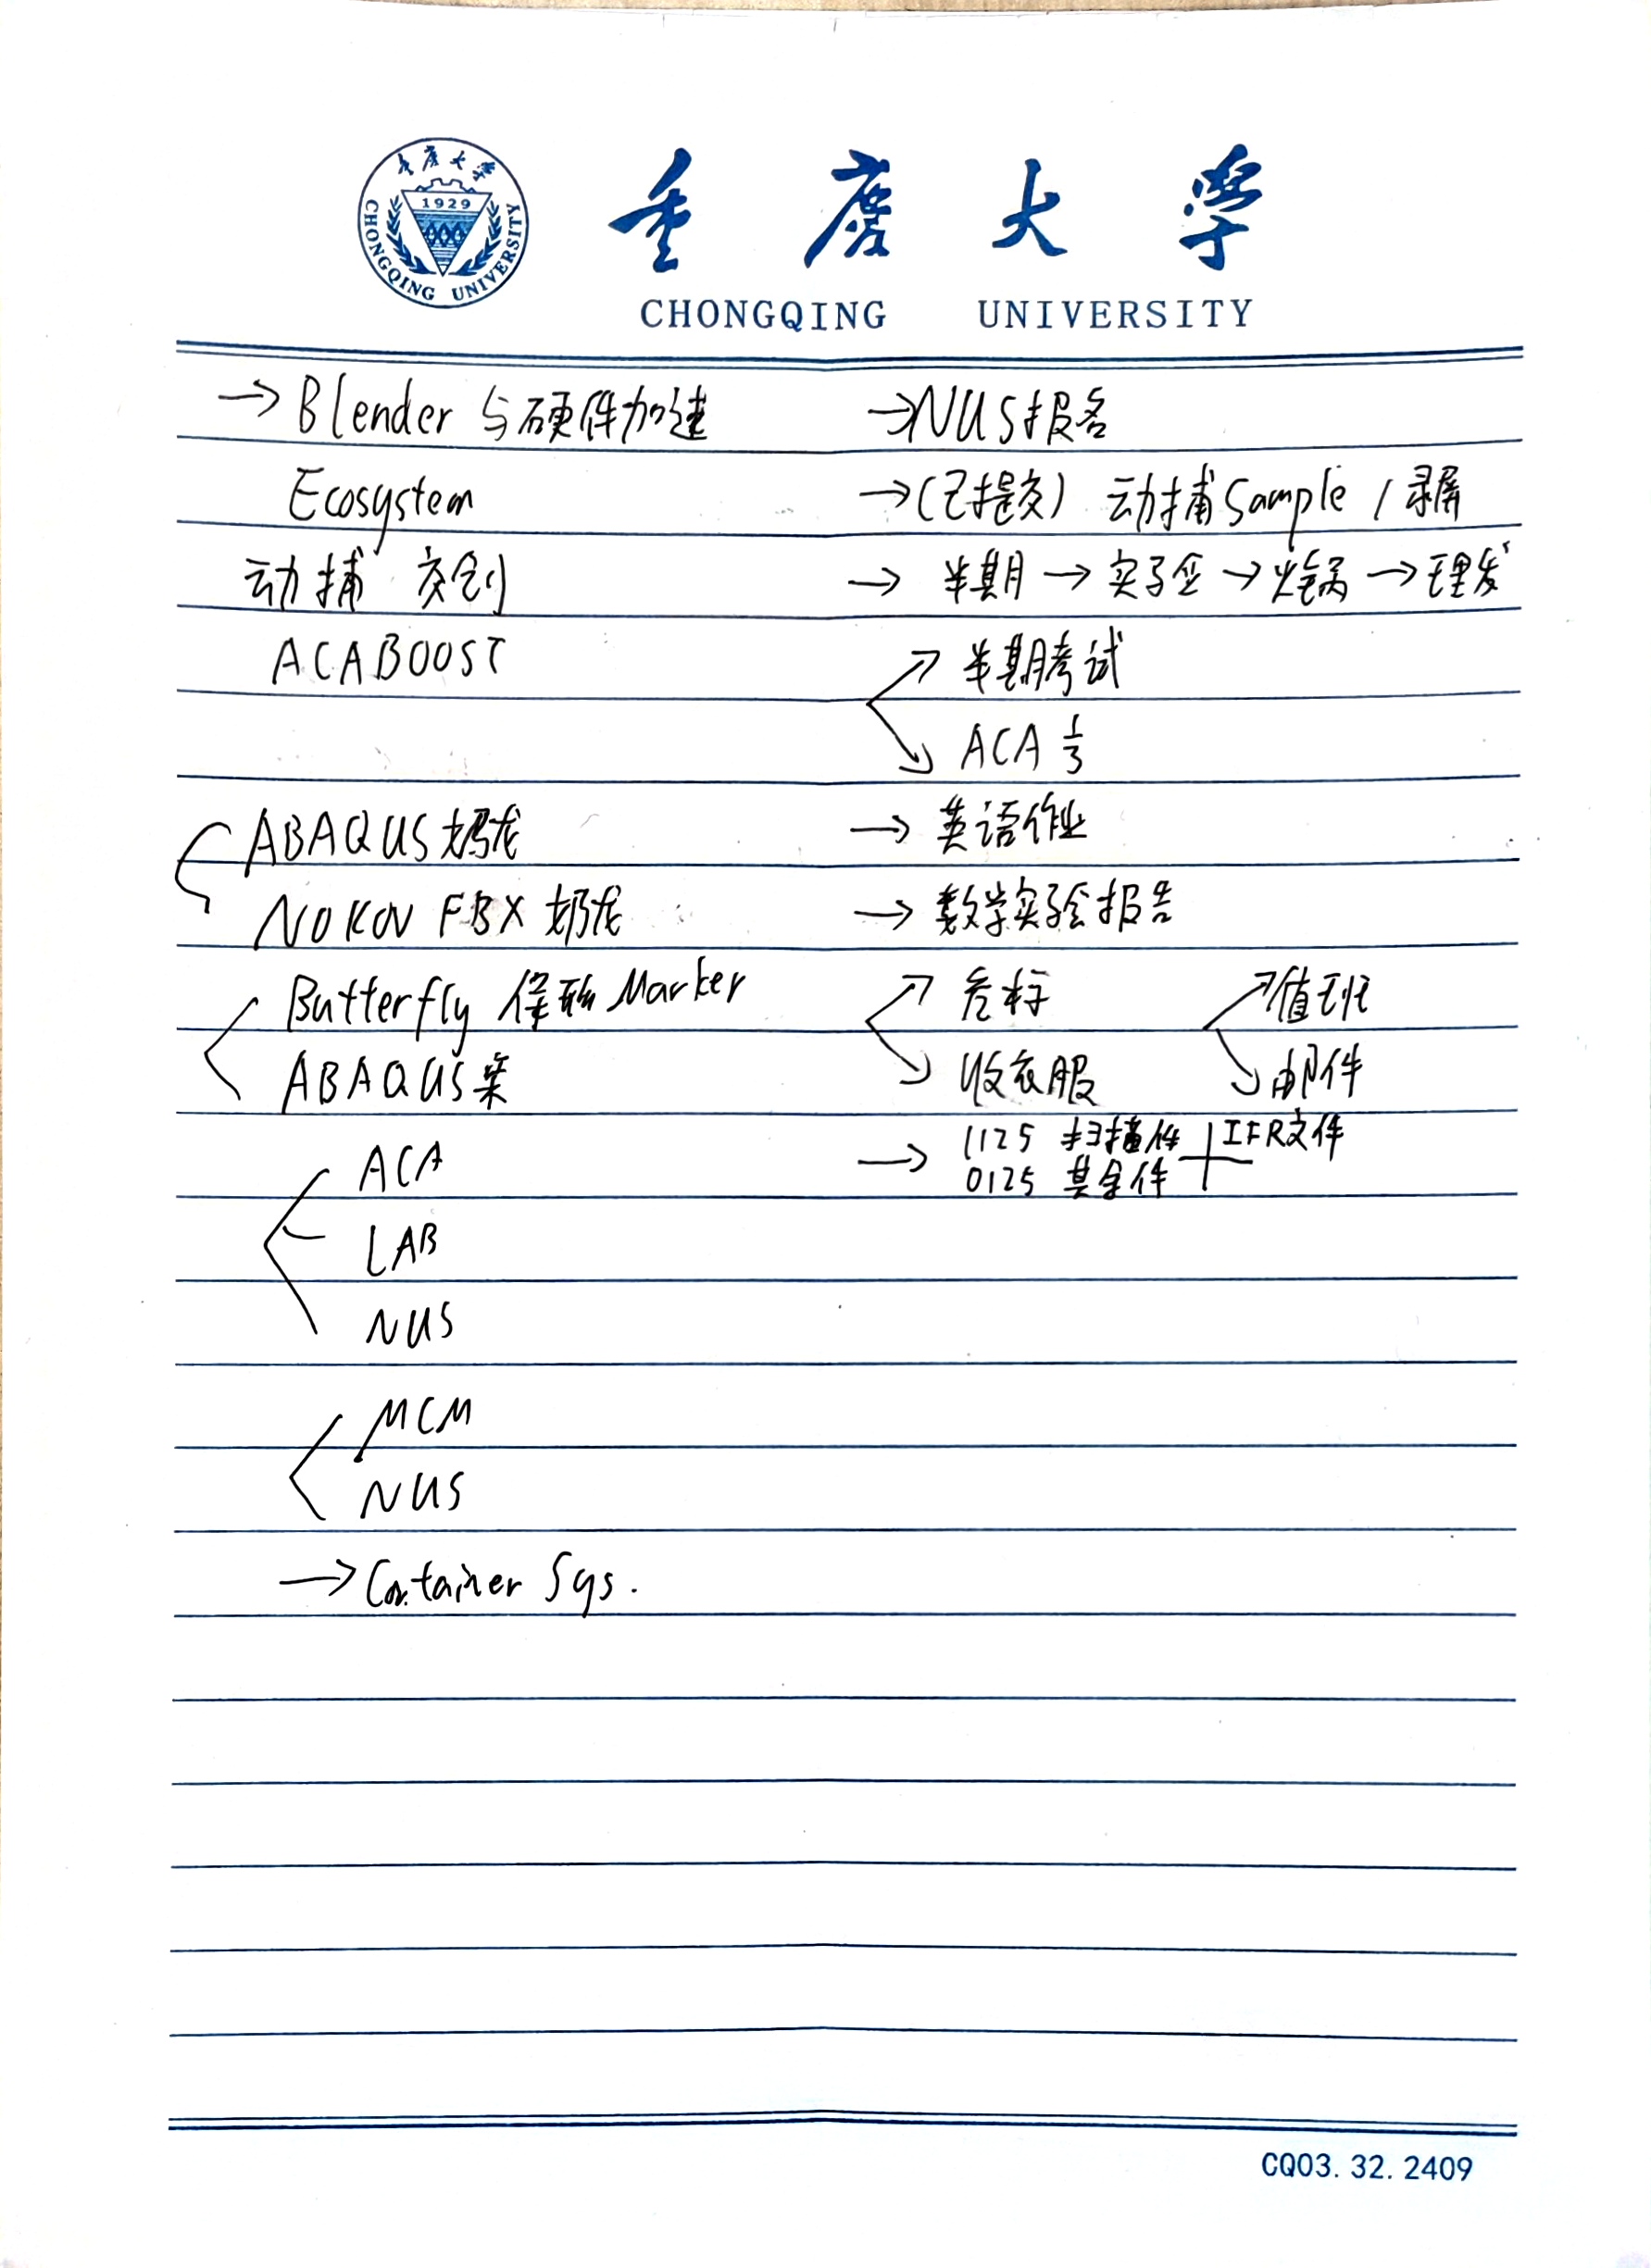 重庆大学
1929
CHONGQING UNIVERSITY
重庆大学
CHONGQING UNIVERSITY
→ Blender 与硬件加速
Ecosystem
动捕 交创
ACABOOST
ABAQUS 奶龙
NOKOV FBX 奶龙
Butterfly Marker
ABAQUS
ACA
LAB
NUS
MCM
NUS
→ Container Sys.
→ NUS报名
→ (已提交) 动捕 Sample / 录屏
→ 半期 → 实验 → 火锅 → 理发
↗ 半期考试
↘ ACA 1/3
→ 英语作业
→ 数学实验报告
↗ 危标 ↗ 值班
↘ 收衣服 ↘ 邮件
→ 1125 扫描件 IFR文件
0125 其余件
CQ03.32.2409